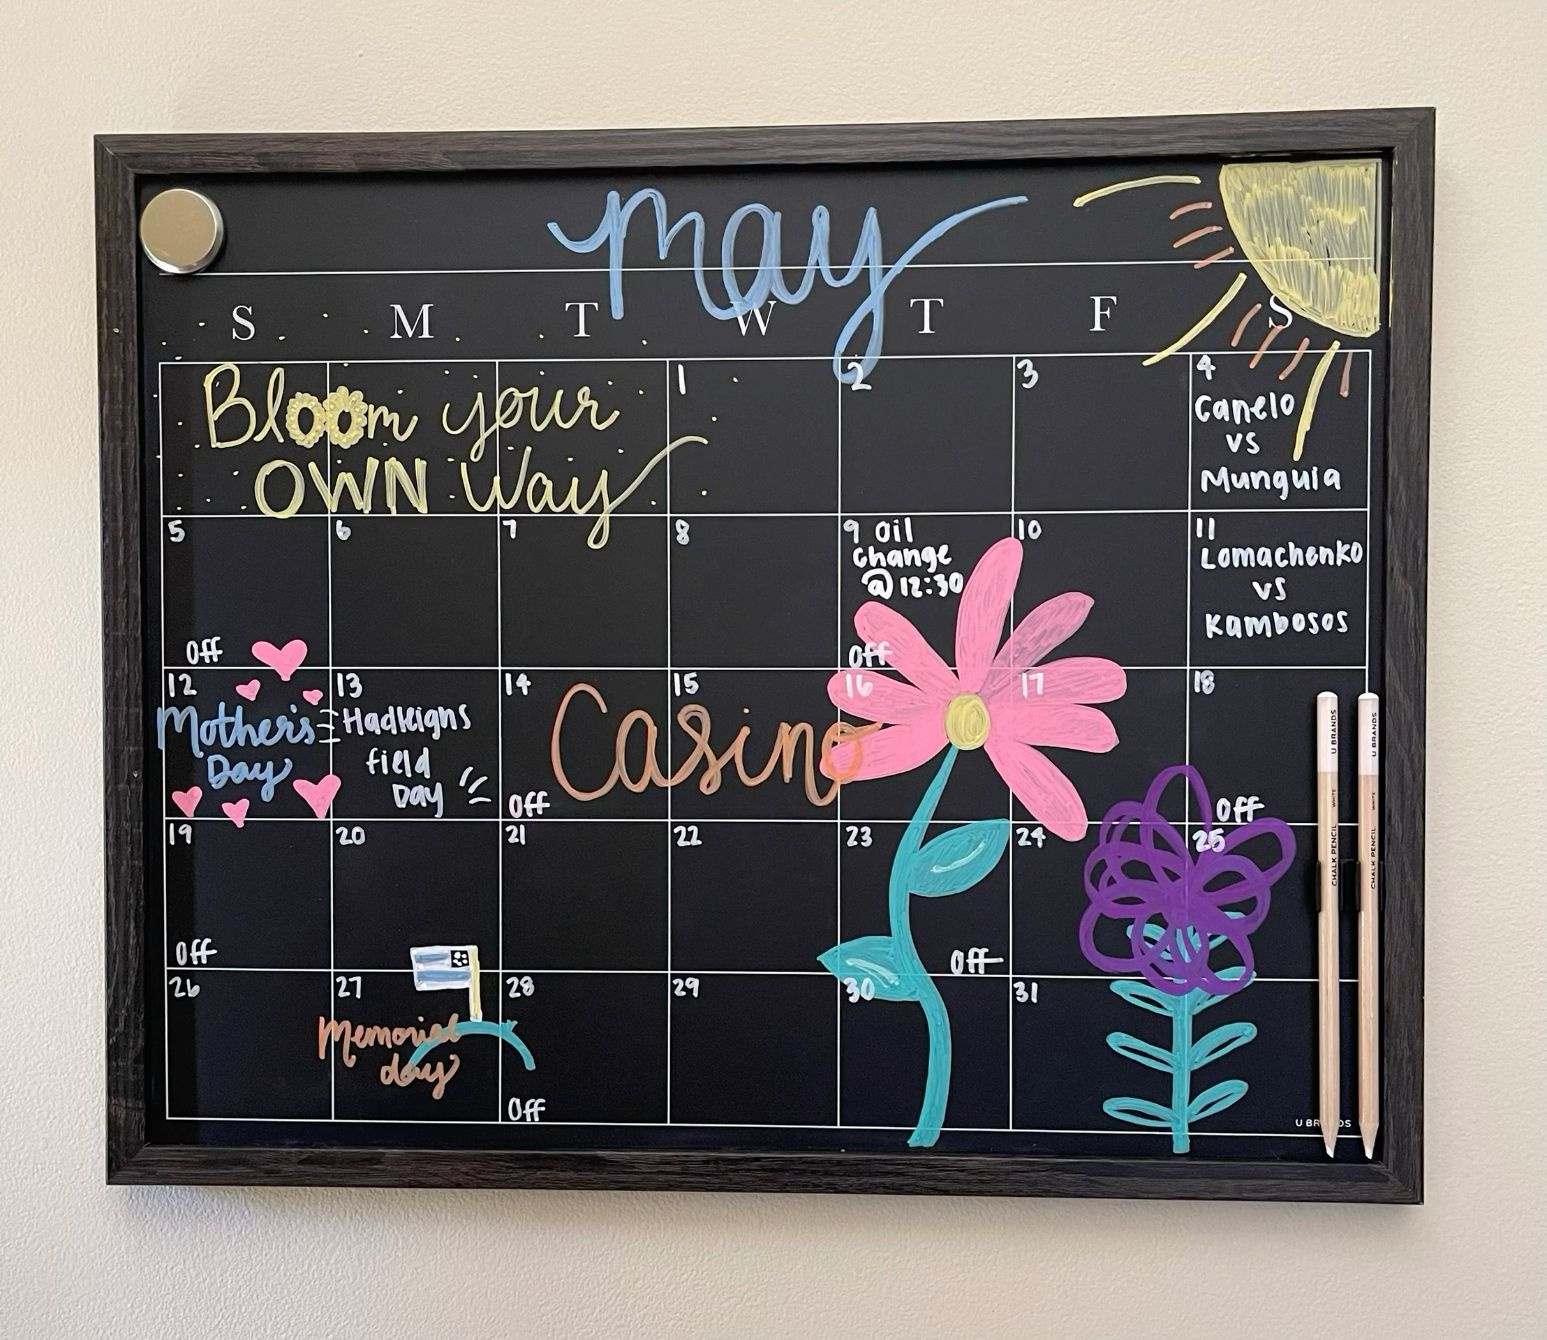 may
S M T W T F S
Bloom your
OWN Way
1
2
3
4
Canelo
vs
Munguia
5
Off
6
7
8
9 Oil
Change
@ 12:30
Off
10
11
Lomachenko
vs
Kambosos
12
Mother's
Day
13
Hadleighs
field
Day
14
Off
Casino
15
16
17
18
Off
19
Off
20
21
22
23
Off
24
25
26
27
Memorial
day
28
Off
29
30
31
U BRANDS
CHALK PENCIL WHITE U BRANDS
CHALK PENCIL WHITE U BRANDS